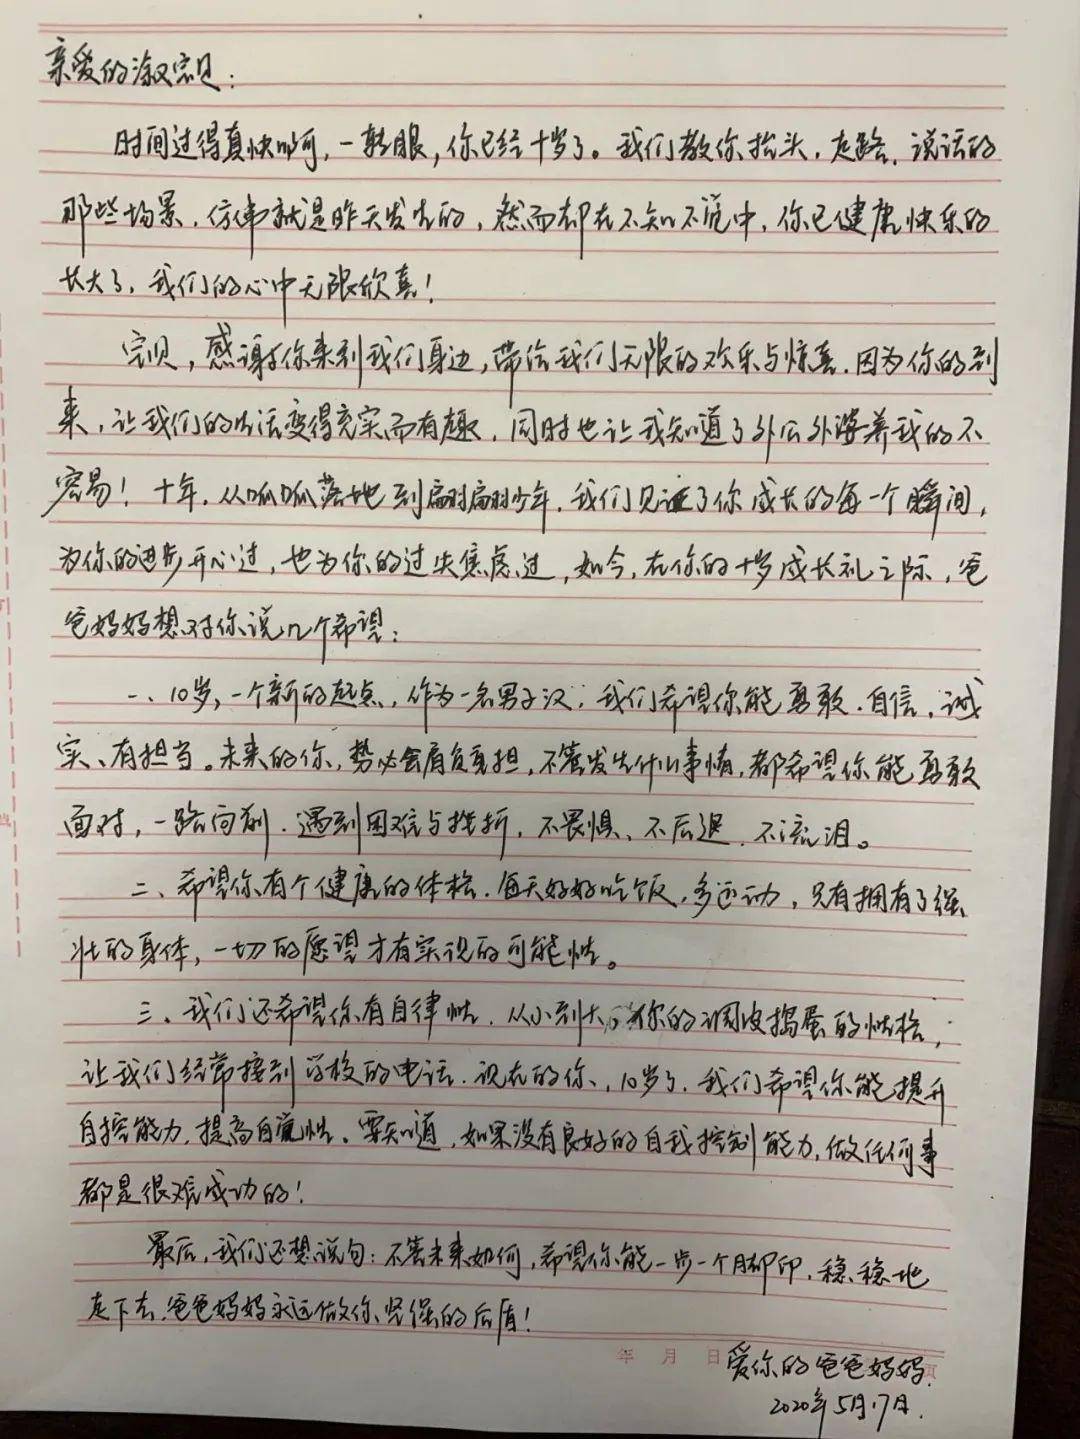 亲爱的溆宝贝：
时间过得真快呀，一转眼，你已经十岁了。我们教你抬头、走路、说话的
那些场景，仿佛就是昨天发生的，然而却在不知不觉中，你已健康快乐的
长大了，我们的心中无限欣喜！
宝贝，感谢你来到我们身边，带给我们无限的欢乐与惊喜，因为你的到
来，让我们的生活变得充实而有趣，同时也让我知道了外公外婆养我的不
容易！十年，从呱呱落地到翩翩少年，我们见证了你成长的每一个瞬间，
为你的进步开心过，也为你的过失焦虑过，如今，在你的十岁成长礼之际，爸
爸妈妈想对你说几个希望：
一、10岁，一个新的起点，作为一名男子汉，我们希望你能勇敢、自信、诚
实、有担当。未来的你，势必会肩负重担，不管发生什么事情，都希望你能勇敢
面对，一路向前。遇到困难与挫折，不畏惧、不后退、不流泪。
二、希望你有个健康的体格，每天好好吃饭，多运动，只有拥有了强
壮的身体，一切的愿望才有实现的可能性。
三、我们还希望你有自律性，从小到大，你的调皮捣蛋的性格，
让我们经常接到学校的电话，现在的你，10岁了，我们希望你能提升
自控能力，提高自觉性。要知道，如果没有良好的自我控制能力，做任何事
都是很难成功的！
最后，我们还想说句：不管未来如何，希望你能一步一个脚印，稳稳地
走下去，爸爸妈妈永远做你坚强的后盾！
年 月 日 页
爱你的爸爸妈妈
2020年5月17日.